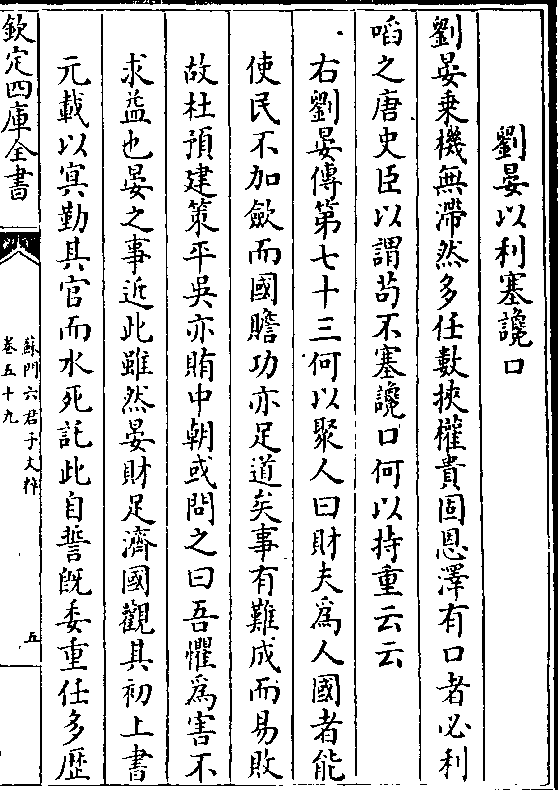 劉晏以利塞讒口
劉晏乗機無滯然多任數挾權貴固恩澤有口者必利
㗖之唐史臣以謂苟不塞讒口何以持重云云
右劉晏傳第七十三何以聚人曰財夫爲人國者能
使民不加歛而國贍功亦足道矣事有難成而易敗
故杜預建策平吳亦賄中朝或問之曰吾懼爲害不
求益也晏之事近此雖然晏財足濟國觀其初上書
元載以㝠勤其官而水死託此自誓旣委重任多歴
欽定四庫全書
蘇門六君子文粹
卷五十九
五